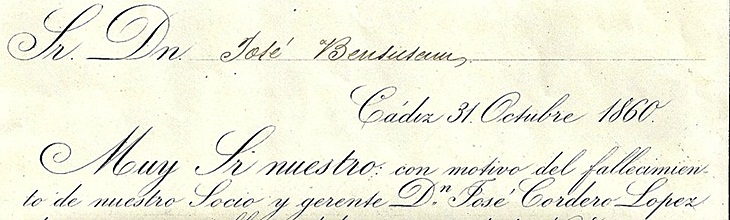 Sr. Dn. José Bensusan
Cádiz 31 Octubre 1860.
Muy Sr nuestro: con motivo del fallecimien-
to de nuestro Socio y gerente Dn. José Cordero Lopez